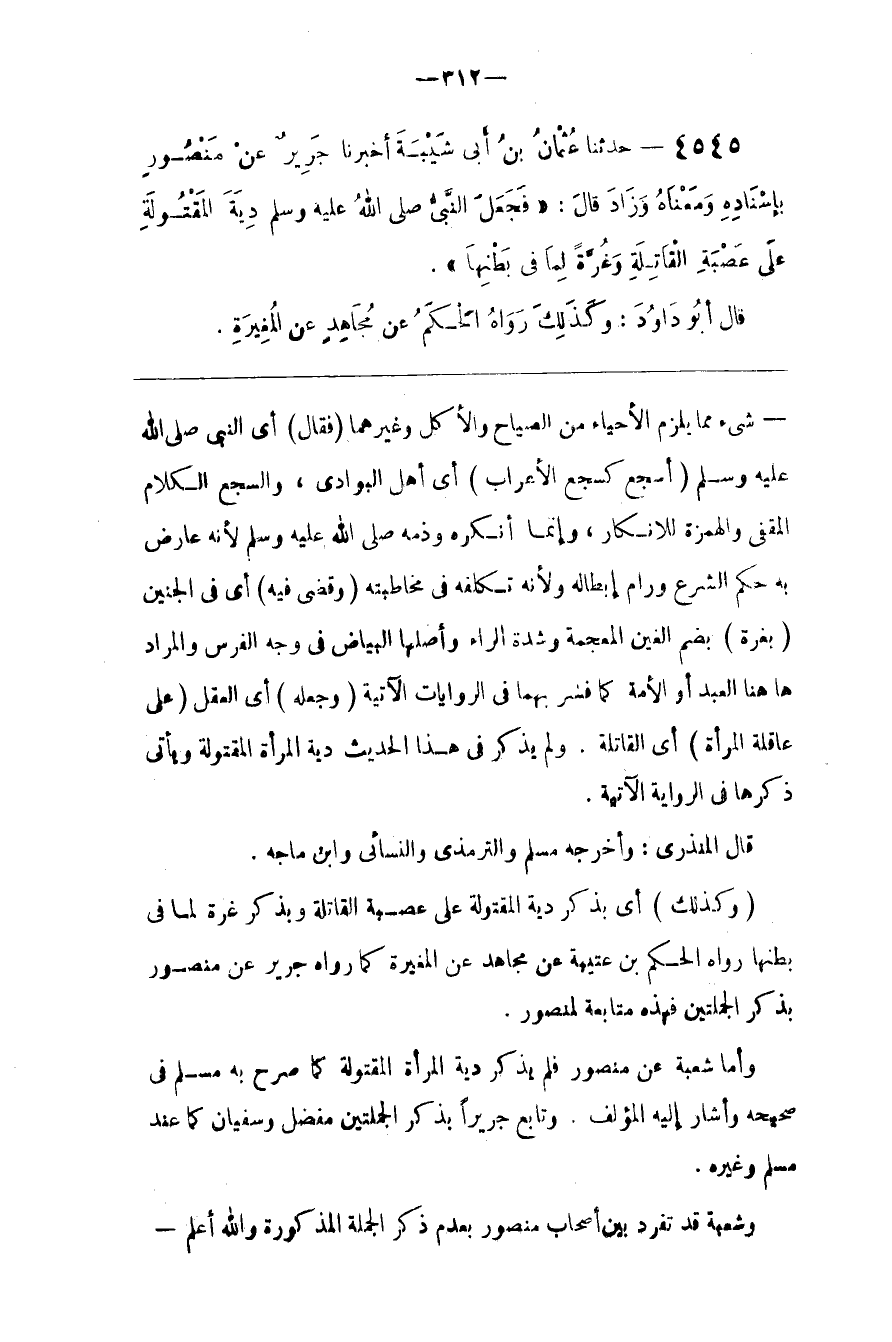 —٣١٢—
٤٥٤٥ — حدثنا عُثْمَانُ بنُ أَبى شَيْبَةَ أخبرنا جَرِيرٌ عن مَنْصُورٍ
بإِسْنَادِهِ وَمَعْنَاهُ وَزَادَ قالَ : « فَجَعَلَ النَّبِىُّ صلى اللهُ عليه وسلم دِيَةَ المَقْتُولَةِ
عَلَى عَصَبَةِ القَاتِلَةِ وَغُرَّةً لِمَا فى بَطْنِهَا » .
قال أَبُو دَاوُدَ : وكَذَلِكَ رَوَاهُ الحَكَمُ عن مُجَاهِدٍ عن المُغِيرَةِ .
— شىء مما يلزم الأحياء من الصياح والأكل وغيرهما (فقال) أى النبى صلى الله
عليه وسلم ( أسجع كسجع الأعراب ) أى أهل البوادى ، والسجع الكلام
المقفى والهمزة للانكار ، وإنما أنكره وذمه صلى الله عليه وسلم لأنه عارض
به حكم الشرع ورام إبطاله ولأنه تكلفه فى مخاطبته ( وقضى فيه) أى فى الجنين
( بغرة ) بضم الغين المعجمة وشدة الراء وأصلها البياض فى وجه الفرس والمراد
ها هنا العبد أو الأمة كما فسر بهما فى الروايات الآتية ( وجعله ) أى العقل (على
عاقلة المرأة ) أى القاتلة . ولم يذكر فى هذا الحديث دية المرأة المقتولة ويأتى
ذكرها فى الرواية الآتية .
قال المنذرى : وأخرجه مسلم والترمذى والنسائى وابن ماجه .
( وكذلك ) أى بذكر دية المقتولة على عصبة القاتلة وبذكر غرة لما فى
بطنها رواه الحكم بن عتيبة عن مجاهد عن المغيرة كما رواه جرير عن منصور
بذكر الجملتين فهذه متابعة لمنصور .
وأما شعبة عن منصور فلم يذكر دية المرأة المقتولة كما صرح به مسلم فى
صحيحه وأشار إليه المؤلف . وتابع جريراً بذكر الجملتين مفضل وسفيان كما عند
مسلم وغيره .
وشعبة قد تفرد بين أصحاب منصور بعدم ذكر الجملة المذكورة والله أعلم —